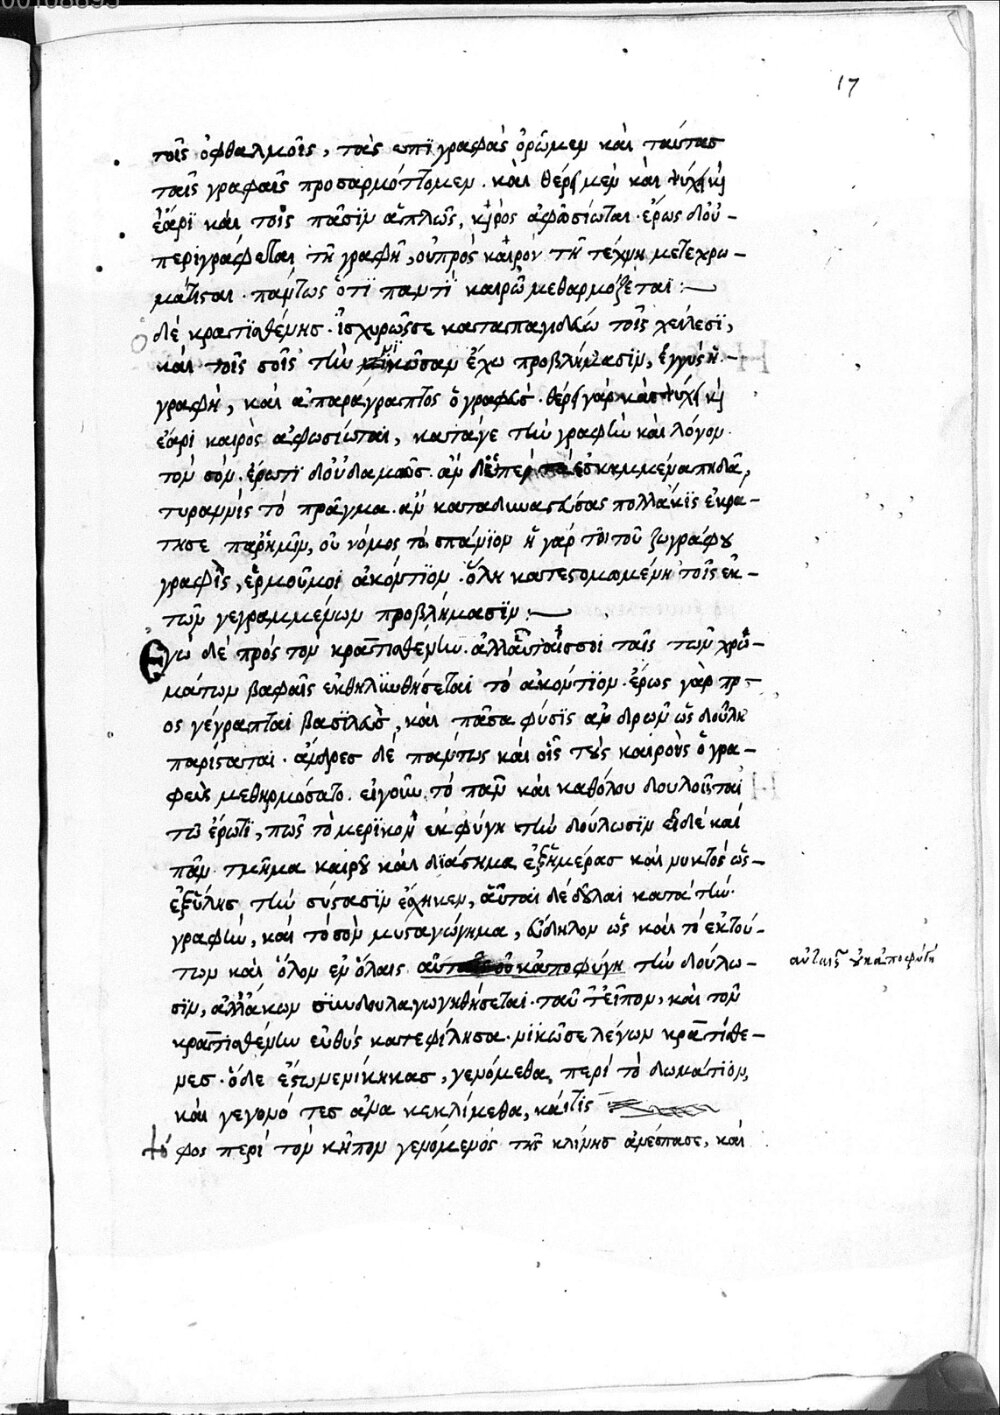 17
τοῖς ὀφθαλμοῖς, τὰς ἐπιγραφὰς ὁρῶμεν καὶ ταύτας
ταῖς γραφαῖς προσαρμόττομεν. καὶ θέρει μὲν καὶ ψύχει κỳ
ἔαρι καὶ τοῖς πᾶσιν ἁπλῶς, καιρὸς ἀφωσίωται. ἔρως δ' οὐ-
περιγράφεται τῇ γραφῇ, οὐ πρὸς καιρὸν τῇ τέχνῃ μετεχρω-
μάτισται. πάντως ὅτι παντὶ καιρῷ μεθαρμόζεται :—
ὁ δὲ κρατισθένης. ἰσχυρῶς σε καταπαγιδεύω τοῖς χείλεσι,
καὶ τοῖς σοῖς τὴν νικῶσαν ἔχω προβλήμασιν, ἐγγὺς ἡ
γραφὴ, καὶ ἀπαράγραπτος ὁ γραφεύς. θέρει γὰρ καὶ ψύχει κỳ
ἔαρι καιρὸς ἀφωσίωται, κάταγε τὴν γραφὴν καὶ λόγον
τὸν σόν. ἔρωτι δ' οὐδαμῶς. ἂν δ' ὑπὲρ τὰ ἐσκαμμένα πηδᾶ,
τυραννὶς τὸ πρᾶγμα. ἂν καταδυναστεύσας πολλάκις ἐκρά-
τησε παρ' ἡμῖν, οὐ νόμος τὸ σπάνιον ἡ γάρ τοι τοῦ ζωγράφου
γραφὶς, ἑρμοῦ μοι ἀκόντιον. ὅλη κατεστομωμένη τοῖς ἐκ-
τῶν γεγραμμένων προβλήμασιν :—
Ἐγὼ δὲ πρὸς τὸν κρατισθένην. ἀλλ' αὐταῖς σοι ταῖς τῶν χρω-
μάτων βαφαῖς ἐκθηλυνθήσεται τὸ ἀκόντιον. ἔρως γὰρ πρ-
ος γέγραπται βασιλεὺς, καὶ πᾶσα φύσις ἀνδρῶν ὡς δούλη
παρίσταται. ἄνδρες δὲ πάντως καὶ οἷς τοὺς καιροὺς ὁ γρα-
φεὺς μεθηρμόσατο. εἰ γοῦν τὸ πᾶν καὶ καθόλου δουλοῦται
τῷ ἔρωτι, πῶς τὸ μερικὸν ἐκφύγῃ τὴν δούλωσιν εἰ δὲ καὶ
πᾶν τμῆμα καιροῦ καὶ διάστημα ἐξ ἡμέρας καὶ νυκτὸς ὡς
ἐξ ὕλης τὴν σύστασιν ἔσχηκεν, αὗται δὲ δοῦλαι κατὰ τὴν
γραφὴν, καὶ τὸ σὸν μυσταγώγημα, εὔδηλον ὡς καὶ τὸ ἐκ τού-
των καὶ ὅλον ἐν ὅλαις αὐταῖς οὐκ ἀποφύγη τὴν δούλω-
αὐταῖς οὐκ ἀποφύγῃ
σιν, ἀλλ' ἄκων συνδουλαγωγηθήσεται. ταῦτ' εἶπον, καὶ τὸν
κρατισθένην εὐθὺς κατεφίλησα. νικῶ σε λέγων κρατίσθε-
νες. ὁ δὲ ἔστω νενίκηκας, γενόμεθα περὶ τὸ δωμάτιον,
καὶ γεγονότες ἅμα κεκλίμεθα, καί τις
ψόφος περὶ τὸν κῆπον γενόμενος τῆς κλίνης ἀνέσπασε, καὶ